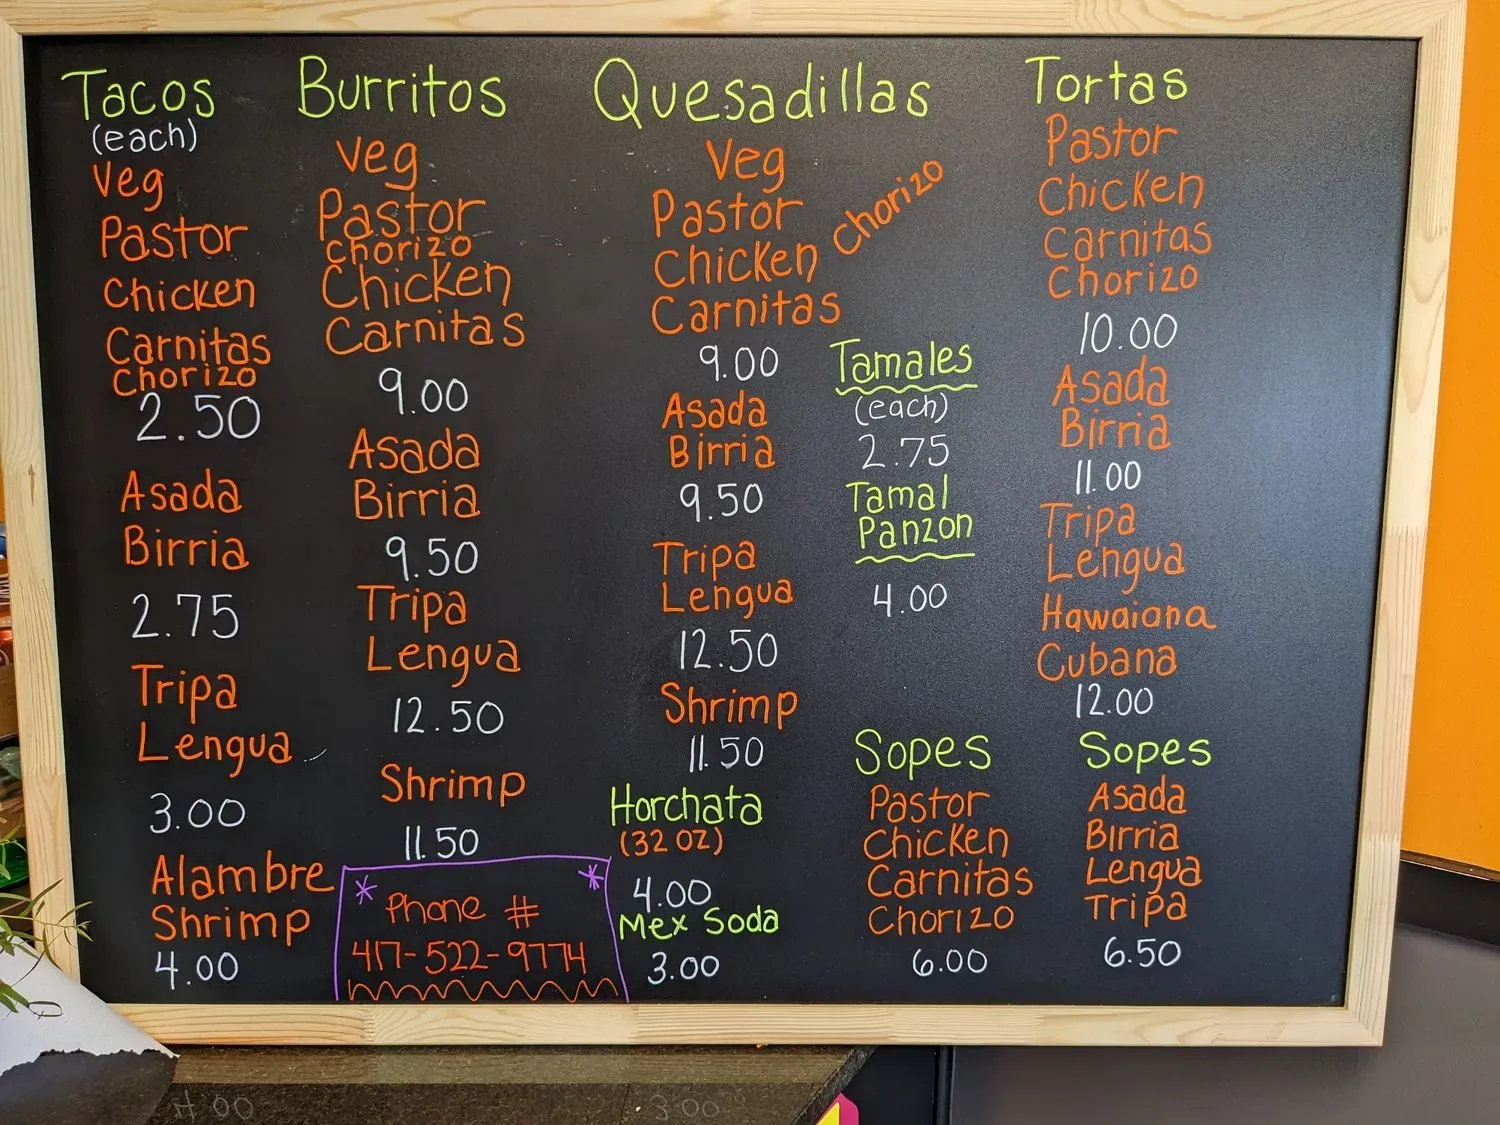 Tacos
(each)
Veg
Pastor
Chicken
Carnitas
Chorizo
2.50
Asada
Birria
2.75
Tripa
Lengua
3.00
Alambre
Shrimp
4.00
Burritos
Veg
Pastor
Chorizo
Chicken
Carnitas
9.00
Asada
Birria
9.50
Tripa
Lengua
12.50
Shrimp
11.50
* Phone # *
417-522-9774
Quesadillas
Veg
Pastor
Chicken
Carnitas
Chorizo
9.00
Asada
Birria
9.50
Tripa
Lengua
12.50
Shrimp
11.50
Horchata
(32 oz)
4.00
Mex Soda
3.00
Tamales
(each)
2.75
Tamal
Panzon
4.00
Sopes
Pastor
Chicken
Carnitas
Chorizo
6.00
Tortas
Pastor
Chicken
Carnitas
Chorizo
10.00
Asada
Birria
11.00
Tripa
Lengua
Hawaiana
Cubana
12.00
Sopes
Asada
Birria
Lengua
Tripa
6.50